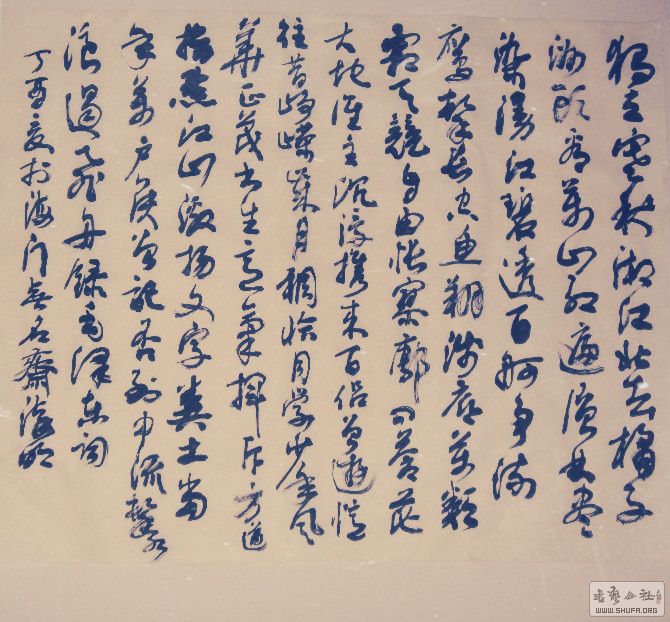 独立寒秋湘江北去橘子
洲头看万山红遍层林尽
染漫江碧透百舸争流
鹰击长空鱼翔浅底万类
霜天竞自由怅寥廓问苍茫
大地谁主沉浮携来百侣曾遊忆
往昔峥嵘岁月稠恰同学少年风
华正茂书生意气挥斥方遒
指点江山激扬文字粪土当
年万户侯曾记否到中流击水
浪遏飞舟录毛泽东词
丁酉夏于海门无名斋
书艺公社
WWW.SHUFA.ORG